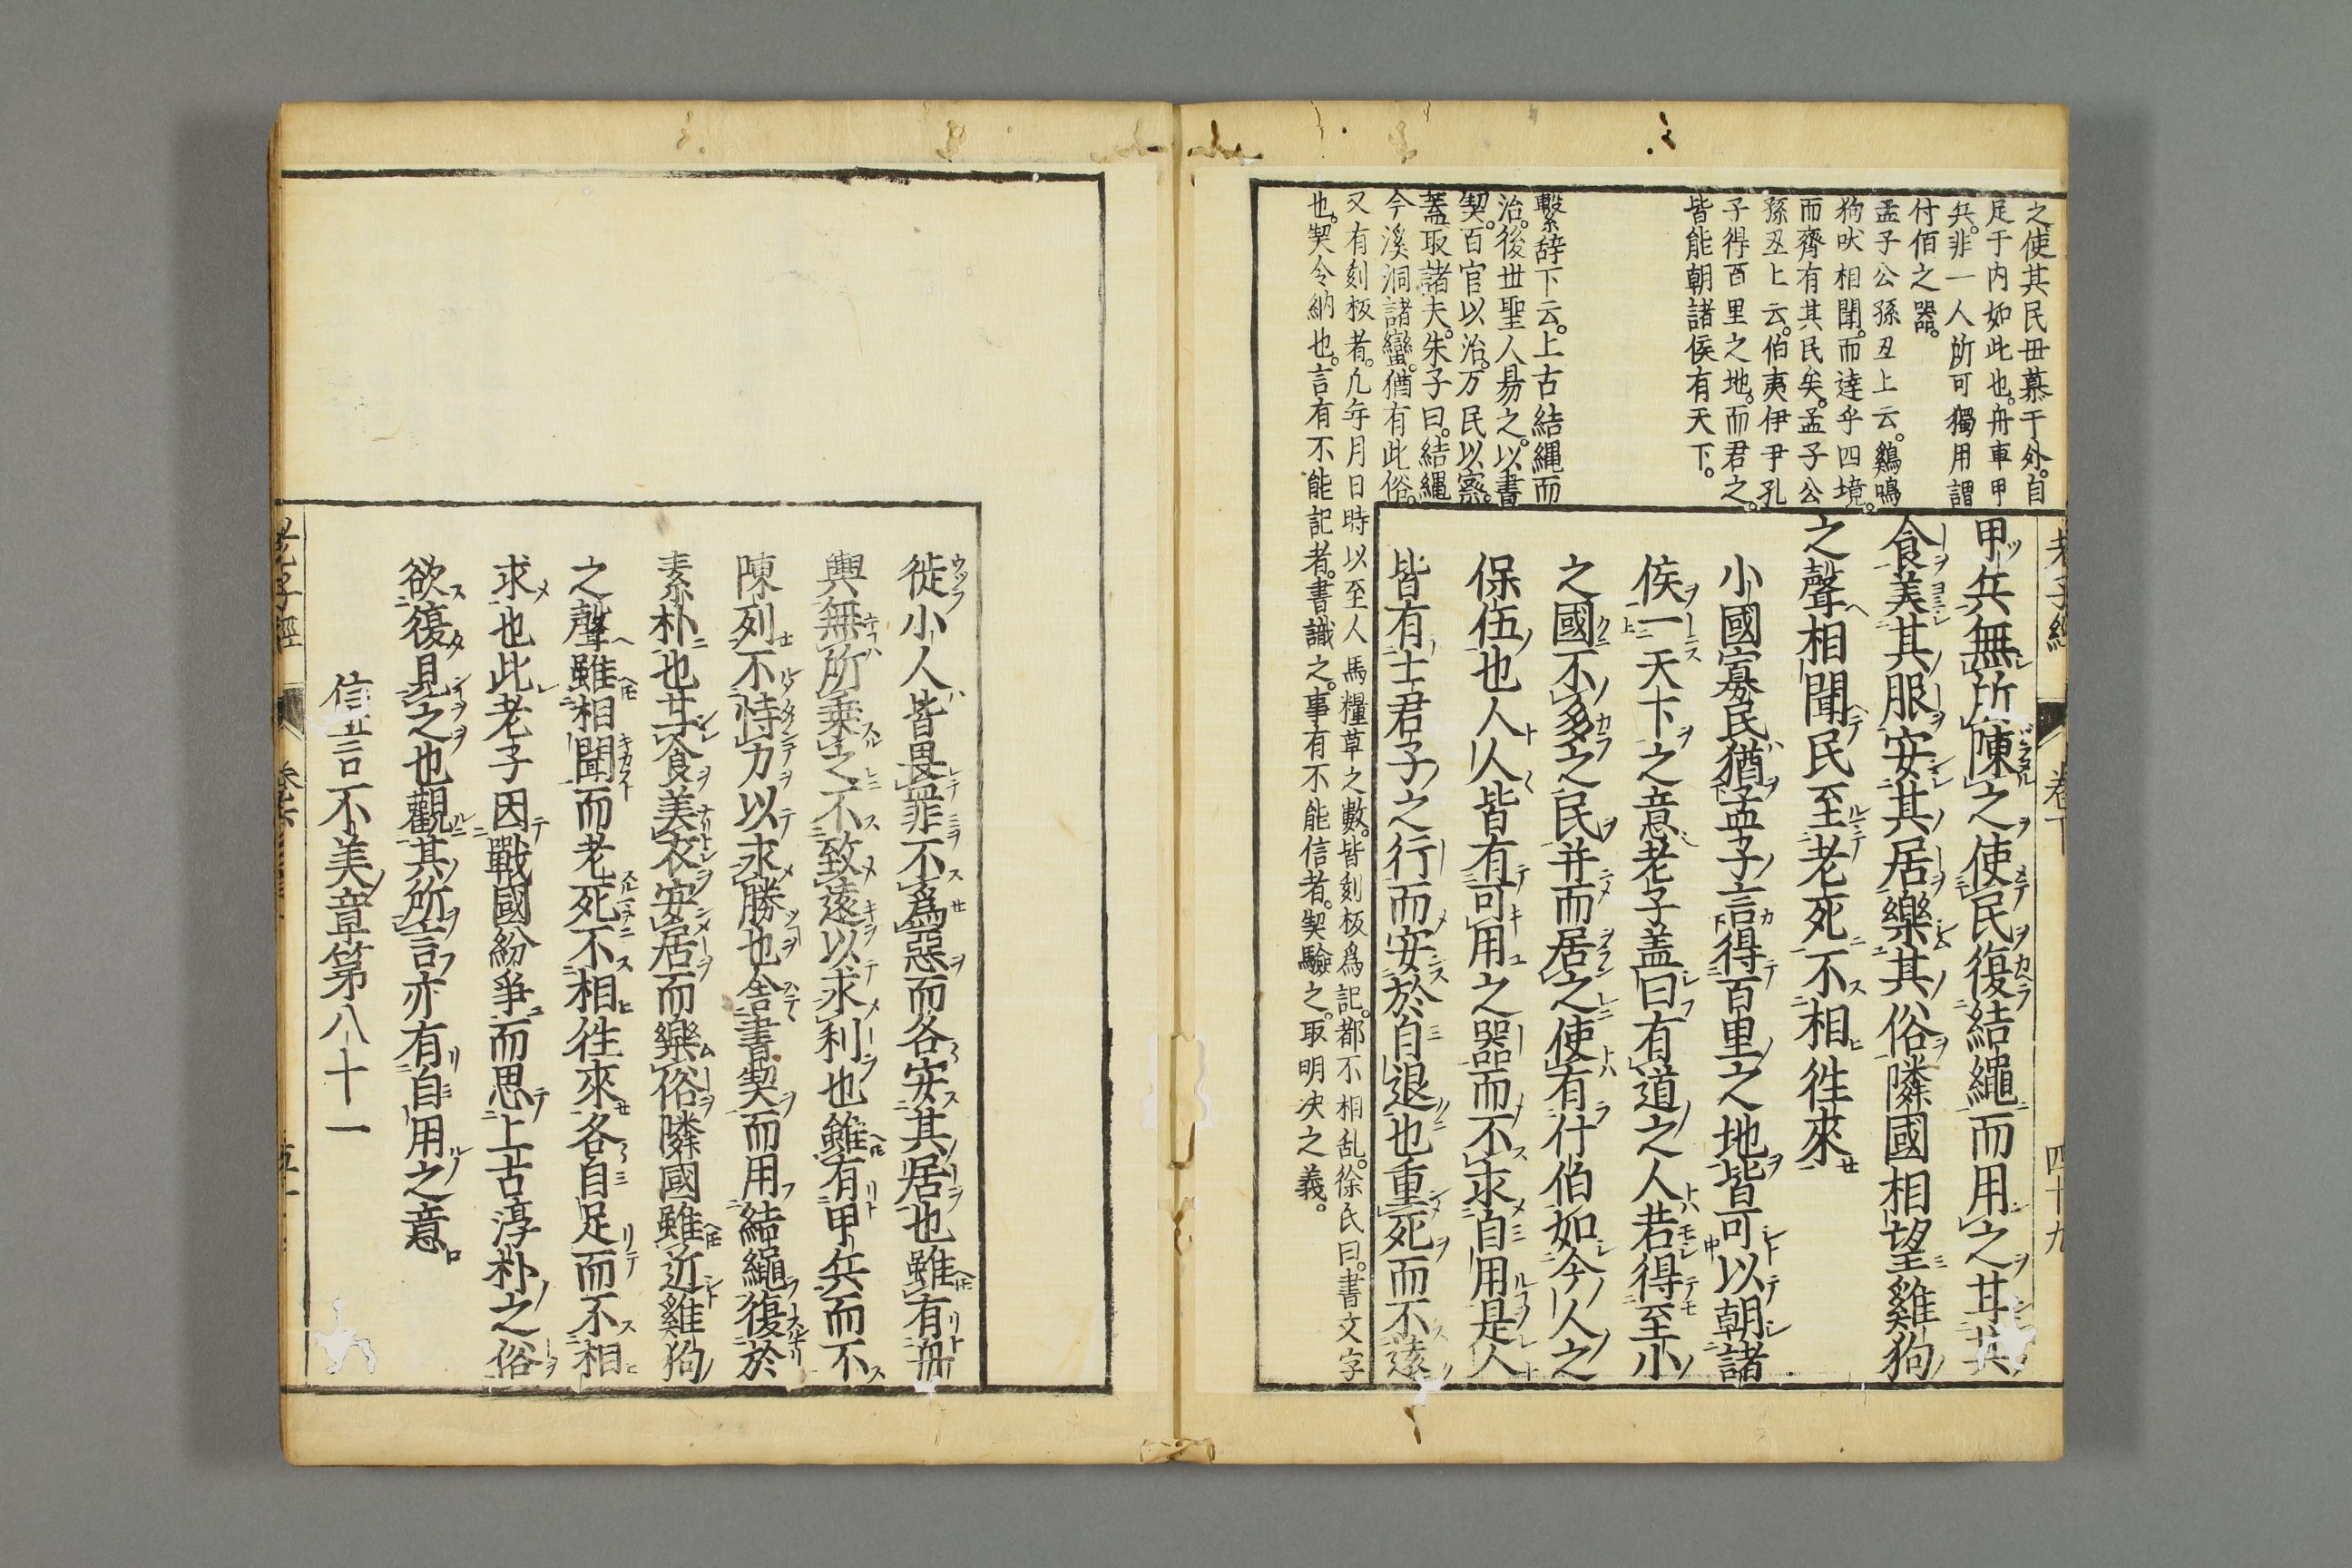 老子經 卷下 四十九
之使其民毋慕于外。自
足于内如此也。舟車甲
兵。非一人所可獨用謂
什佰之器。
孟子公孫丑上云。鷄鳴
狗吠相聞。而達乎四境。
而齊有其民矣。孟子公
孫丑上云。伯夷伊尹孔
子得百里之地。而君之。
皆能朝諸侯有天下。
繫辞下云。上古結繩而
治。後世聖人易之。以書
契。百官以治。万民以察。
蓋取諸夬。朱子曰。結繩
今溪洞諸蠻。猶有此俗。
又有刻板者。凡年月日時以至人馬糧草之數。皆刻板爲記。都不相乱。徐氏曰。書文字
也。契合納也。言有不能記者。書識之。事有不能信者。契驗之。取明决之義。
甲兵無所陳之使民復結繩而用之甘其
食美其服安其居樂其俗隣國相望雞狗
之聲相聞民至老死不相徃來
小國寡民猶孟子言得百里之地皆可以朝諸
侯一天下之意老子盖曰有道之人若得至小
之國不多之民并而居之使有什伯如今人之
保伍也人人皆有可用之器而不求自用是人
皆有士君子之行而安於自退也重死而不遠
徙小人皆畏罪不爲惡而各安其居也雖有舟
輿無所乗之不致遠以求利也雖有甲兵而不
陳列不恃力以求勝也舍書契而用結繩復於
素朴也甘食美衣安居而樂俗隣國雖近雞狗
之聲雖相聞而老死不相徃來各自足而不相
求也此老子因戰國紛爭而思上古淳朴之俗
欲復見之也觀其所言亦有自用之意
信言不美章第八十一
老子經